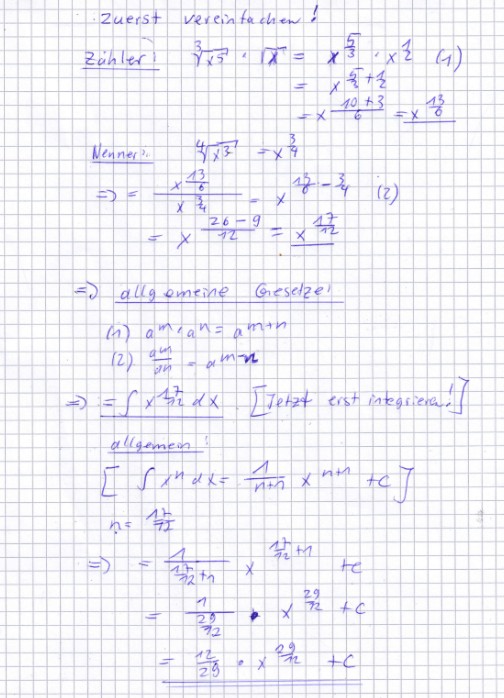 zuerst vereinfachen!
Zähler: ∛x⁵ · √x = x^(5/3) · x^(1/2) (1)
= x^(5/3 + 1/2)
= x^((10+3)/6) = x^(13/6)
Nenner: ∜x³ = x^(3/4)
=> = x^(13/6) / x^(3/4) = x^(13/6 - 3/4) (2)
= x^((26-9)/12) = x^(17/12)
=> allgemeine Gesetze:
(1) a^m · a^n = a^(m+n)
(2) a^m/a^n = a^(m-n)
=> = ∫ x^(17/12) dx [Jetzt erst integrieren!]
allgemein:
[ ∫ x^n dx = 1/(n+1) x^(n+1) + C ]
n = 17/12
=> = 1/(17/12 + 1) x^(17/12 + 1) + C
= 1/(29/12) · x^(29/12) + C
= 12/29 · x^(29/12) + C